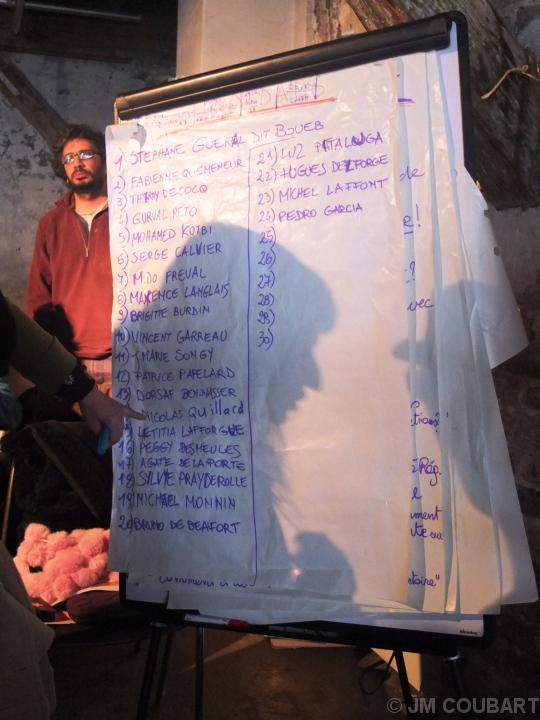 1 STEPHANE GUERAL DIT BOUEB
2) FABIENNE QUEMENEUR
3) THIERRY DECOCQ
4) GURVAL RETO
5) MOHAMED KOTBI
6) SERGE CALVIER
7) M.DO FREVAL
8) MAXENCE LANGLAIS
9) BRIGITTE BURDIN
10) VINCENT GARREAU
11) MARIE SONGY
12) PATRICE PAPELARD
13) DORSAF
NICOLAS QUILLARD
LETITIA LAFFORGUE
16) PEGGY DESMEULES
17 AGATE DE LA PORTE
18) SYLVIE PRAYDEROLLE
19) MICHAEL MONNIN
20) BRUNO DE BEAUFORT
21) LUZ PATALUGA
22) HUGUES DELFORGE
23) MICHEL LAFFONT
24) PEDRO GARCIA
25)
26)
27)
28)
29)
30)
de
!
?
vec
Rég.
e
ument
toire"
© JM COUBART